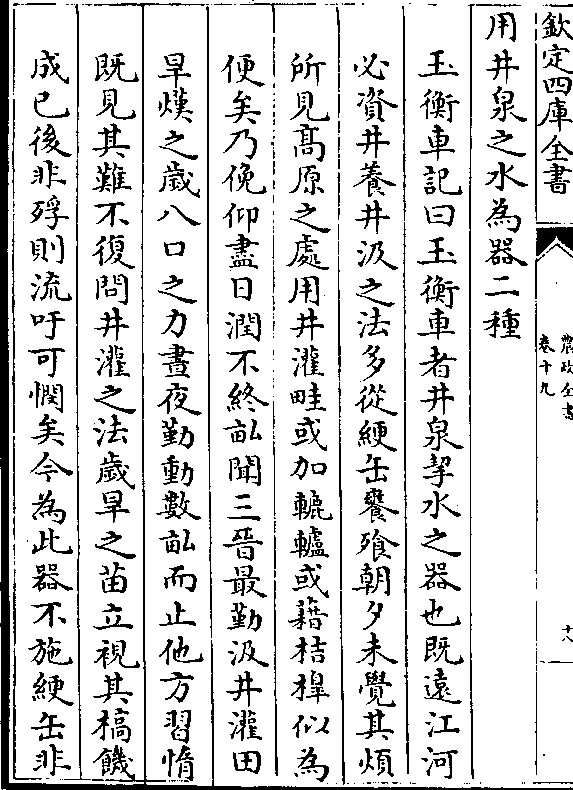 欽定四庫全書
農政全書
卷十九
十八
用井泉之水為器二種
玉衡車記曰玉衡車者井泉挈水之器也既遠江河
必資井養井汲之法多從綆缶饔飱朝夕未覺其煩
所見髙原之處用井灌畦或加轆轤或藉桔橰似為
便矣乃俛仰盡日潤不終畝聞三晉最勤汲井灌田
旱熯之歲八口之力晝夜勤動數畝而止他方習惰
既見其難不復問井灌之法歲旱之苗立視其槁饑
成已後非殍則流吁可憫矣今為此器不施綆缶非